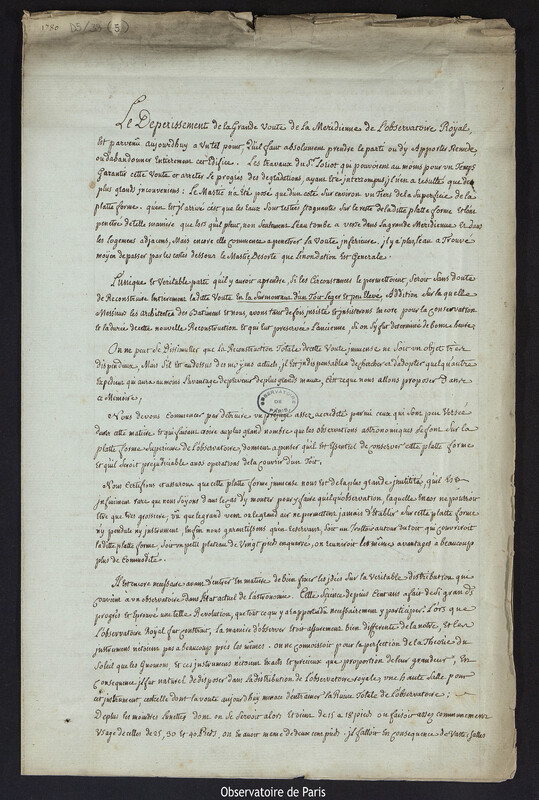 1780 D5/39 (5)
Le Deperissement de la Grande voute de La Meridienne de L'observatoire Royal,
Est parvenu aujourdhuy a untel point, quil faut absolument prendre le parti ou dy Apporter Remede
ou dabandonner Entierement cet Edifice. Les travaux du Sr qui pouvoient au moins pour un Temps
Garantir cette Voute et arreter le progrès des degradations, ayant été interrompus, il en a resulté que de
plus grands inconveniens: Le Mastic n'a été posé que dun coté Sur environ un Tiers de la Superficie de la
platte forme. quen est-il arrivé c'est que les Eaux Sont restées stagnantes Sur le reste de ladite platte forme et l'ont
penetrée de telle maniere que lors quil pleut, non Seulement L'eau tombe a verse dans la grande Meridienne et dans
les logemens adjacens, Mais encore elle commence a penetrer la Voute inferieure. il y a plus, l'eau a Trouvé
moyen de passer par les cotés dessous le Mastic, Desorte que L'inondation est Generale.
L'unique et Veritable parti qu'il y auroit a prendre, Si les Circonstances le permettoient, Seroit Sans doute
de Reconstruire Entierement ladite Voute en la Surmontant d'un Toit Leger et peu Elevé. Addition Sur laquelle
Messieurs les architectes des Batimens et nous, avons tant de fois insisté et insisterons encore pour la conservation
et la durée de cette nouvelle Reconstruction et qui Eut preservée l'ancienne Si on Sy fut determiné de bonne heure.
On ne peut Se Dissimuler que la Reconstruction Totale de cette Voute immense ne Soit un objet Tres
dispendieux. Mais Sil est audessus des moyens actuels, il est indispensable de chercher et d'adopter quelqu'autre
Expedient qui aura au moins l'avantage de prevenir de plus grands maux, c'est ce que nous allons proposer Dans
ce Memoire,
OBSERVATOIRE DE PARIS
Nous devons Commencer par detruire un prejugé assez accredité parmi ceux qui Sont peu Versés
dans cette matiere et qui faisant croire au plus grand nombre que les observations astronomiques Se font Sur la
platte forme Superieure de L'observatoire, donneroit a penser quil est Essentiel de conserver cette platte forme
et quil Seroit prejudiciable a nos operations de la couvrir d'un Toit.
Nous Certifions et assurons que cette platte forme immense nous est de la plus grande inutilité, quil est
infiniment rare que nous Soyons dans le cas d'y monter pour y faire quelqu'observation, laquelle encore ne pourroit
etre que tres grossiere. Vu que le grand vent ou le grand air ne permettent jamais d'etablir Sur cette platte forme
ny pendule ny instrument. Enfin nous garantissons qu'en reservant, Soit un Trottoir autour du toit qui couvriroit
ladite platte forme, Soit un petit plateau de Vingt pieds en quarré, on reuniroit les mêmes avantages a beaucoup
plus de Commodité.
Il est encore necessaire avant d'entrer en matiere de bien fixer les idées Sur la veritable distribution qui
convient a un observatoire dans letat actuel de L'astronomie. Cette Science depuis Cent ans a fait de Si grands
progrès et Eprouvé une telle Revolution, que tout ce qui y a rapport a du necessairement y participer. Lors que
L'observatoire Royal fut construit, La maniere d'observer etoit assurement bien differente de la notre, et les
instrumens n'etoient pas a beaucoup près les mêmes. on ne connoissoit pour la perfection de la Theorie du
Soleil que les Gnomons, et ces instrumens n'etoient Exacts et precieux que proportion de leur grandeur, En
consequence il fut naturel de disposer dans la distribution de L'observatoire royal, une haute Salle pour
cet instrument, cest celle dont la voute aujourdhuy menace d'entrainer La Ruine Totale de L'observatoire:
De plus les moindres Lunettes dont on Se Servoit alors etoient de 15 a 18 pieds on faisoit assez communement
Usage de celles de 25, 30 et 40 Pieds, on en avoit meme de deux cent pieds. il falloit En consequence de Vastes Salles
Observatoire de Paris